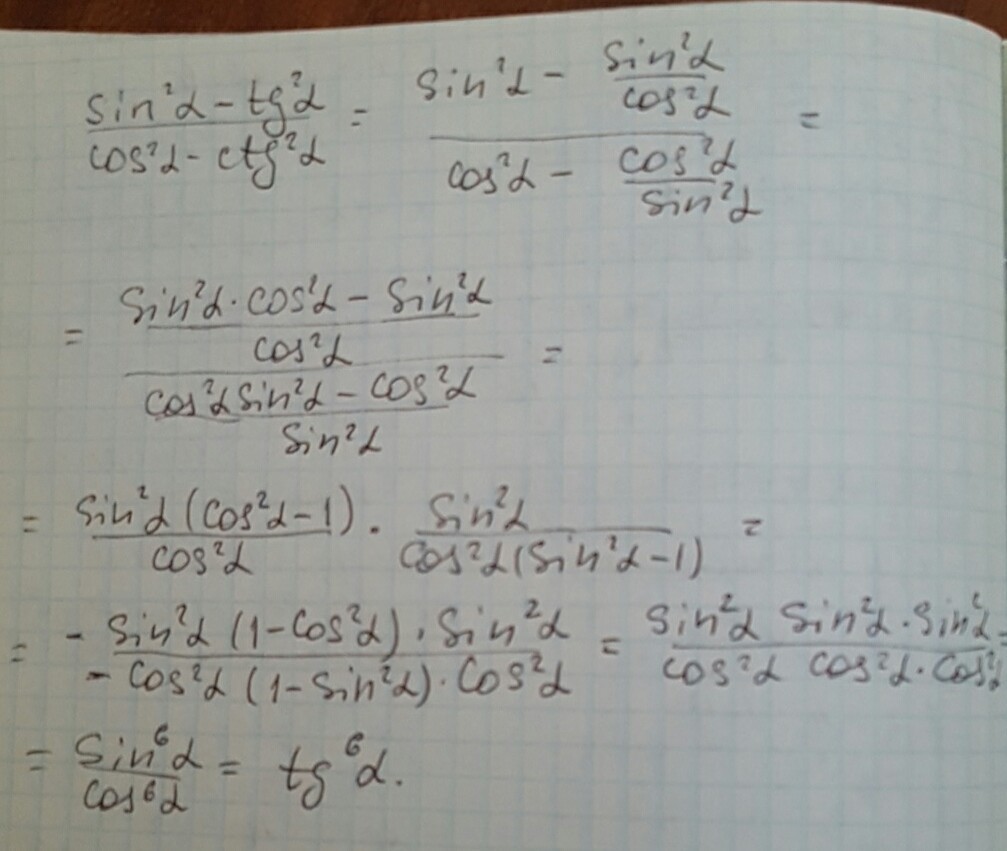 (sin²α - tg²α)/(cos²α - ctg²α) = (sin²α - sin²α/cos²α)/(cos²α - cos²α/sin²α) =
= ((sin²α · cos²α - sin²α)/cos²α)/((cos²α sin²α - cos²α)/sin²α) =
= (sin²α (cos²α - 1))/cos²α · sin²α/(cos²α (sin²α - 1)) =
= (- sin²α (1 - cos²α) · sin²α)/(- cos²α (1 - sin²α) · cos²α) = (sin²α sin²α · sin²α)/(cos²α cos²α · cos²α) =
= sin⁶α/cos⁶α = tg⁶α.